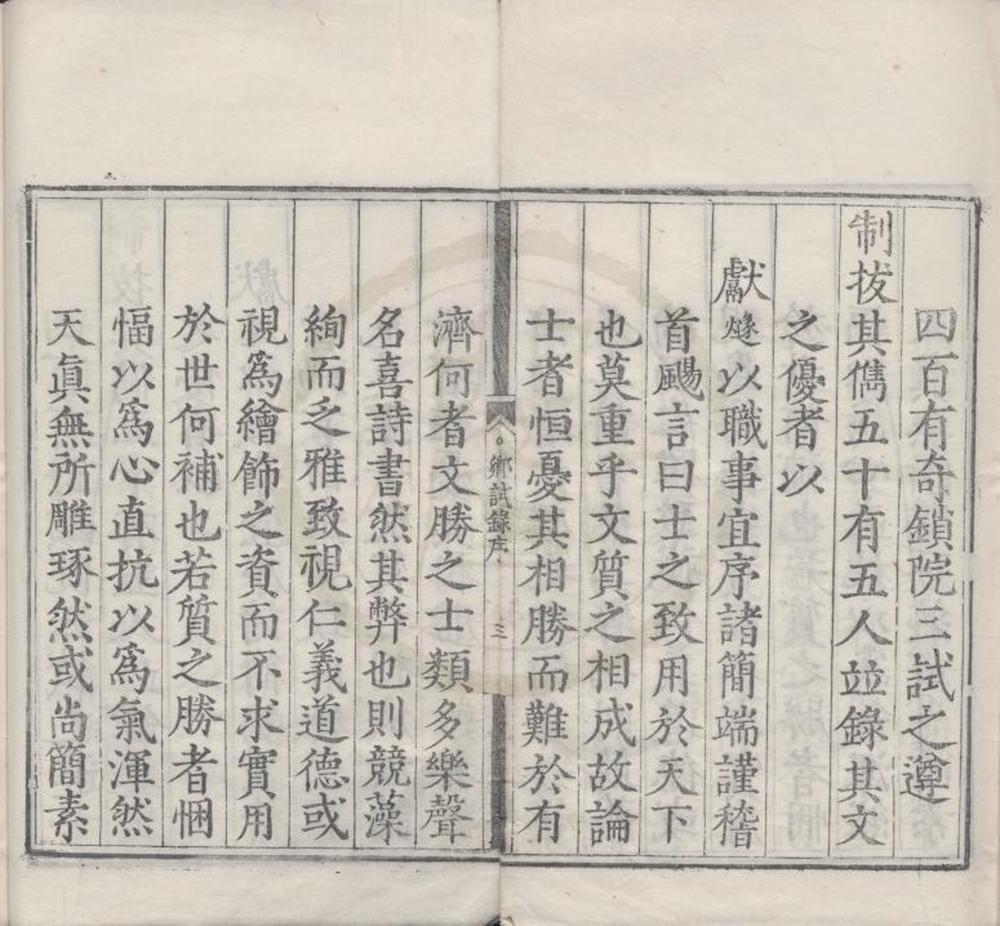 四百有奇鎖院三試之遵
制拔其儁五十有五人並錄其文
之優者以
獻燧以職事宜序諸簡端謹稽
首颺言曰士之致用於天下
也莫重乎文質之相成故論
士者恒憂其相勝而難於有
鄉試錄序 三
濟何者文勝之士類多樂聲
名喜詩書然其弊也則競藻
絢而乏雅致視仁義道德或
視爲繪飾之資而不求實用
於世何補也若質之勝者悃
愊以爲心直抗以爲氣渾然
天眞無所雕琢然或尚簡素